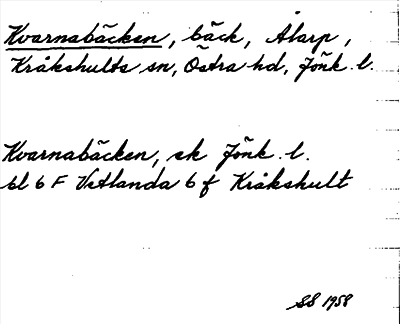 Kvarnabäcken, bäck, Åkarp,
Kråkshults sn, Östra hd, Jönk. l.
Kvarnabäcken, ek Jönk. l.
bl 6 F Vetlanda 6 f Kråkshult
SS 1958